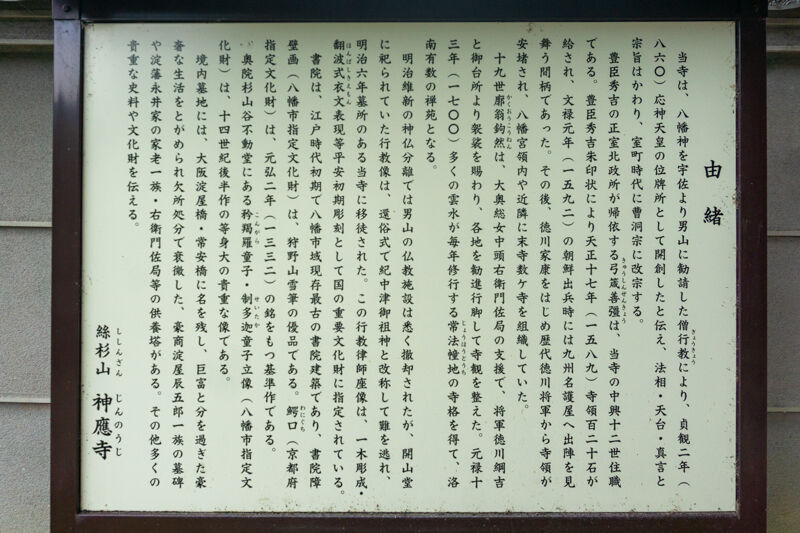 由緒
当寺は、八幡神を宇佐より男山に勧請した僧行教により、貞観二年（
ぎょうきょう
八六〇）応神天皇の位牌所として開創したと伝え、法相・天台・真言と
宗旨はかわり、室町時代に曹洞宗に改宗する。
豊臣秀吉の正室北政所が帰依する弓箴善彊は、当寺の中興十二世住職
きゅうしんぜんきょう
である。豊臣秀吉朱印状により天正十七年（一五八九）寺領百二十石が
給され、文禄元年（一五九二）の朝鮮出兵時には九州名護屋へ出陣を見
舞う間柄であった。その後、徳川家康をはじめ歴代徳川将軍から寺領が
安堵され、八幡宮領内や近隣に末寺数ケ寺を組織していた。
十九世廓翁鉤然は、大奥総女中頭右衛門佐局の支援で、将軍徳川綱吉
かくおうこうねん
と御台所より袈裟を賜わり、各地を勧進行脚して寺観を整えた。元禄十
三年（一七〇〇）多くの雲水が毎年修行する常法幢地の寺格を得て、洛
じょうほうとうち
南有数の禅苑となる。
明治維新の神仏分離では男山の仏教施設は悉く撤却されたが、開山堂
に祀られていた行教像は、還俗式で紀中津御祖神と改称して難を逃れ、
明治六年墓所のある当寺に移徒された。この行教律師座像は、一木彫成・
翻波式衣文表現等平安初期彫刻として国の重要文化財に指定されている。
ほんぱしきえもん
書院は、江戸時代初期で八幡市域現存最古の書院建築であり、書院障
壁画（八幡市指定文化財）は、狩野山雪筆の優品である。鰐口（京都府
わにぐち
指定文化財）は、元弘二年（一三三二）の銘をもつ基準作である。
奥院杉山谷不動堂にある矜羯羅童子・制多迦童子立像（八幡市指定文
こんがら
せいたか
化財）は、十四世紀後半作の等身大の貴重な像である。
境内墓地には、大阪淀屋橋・常安橋に名を残し、巨富と分を過ぎた豪
奢な生活をとがめられ欠所処分で衰微した、豪商淀屋辰五郎一族の墓碑
や淀藩永井家の家老一族・右衛門佐局等の供養塔がある。その他多くの
貴重な史料や文化財を伝える。
絲杉山 神應寺
ししんざん じんのうじ